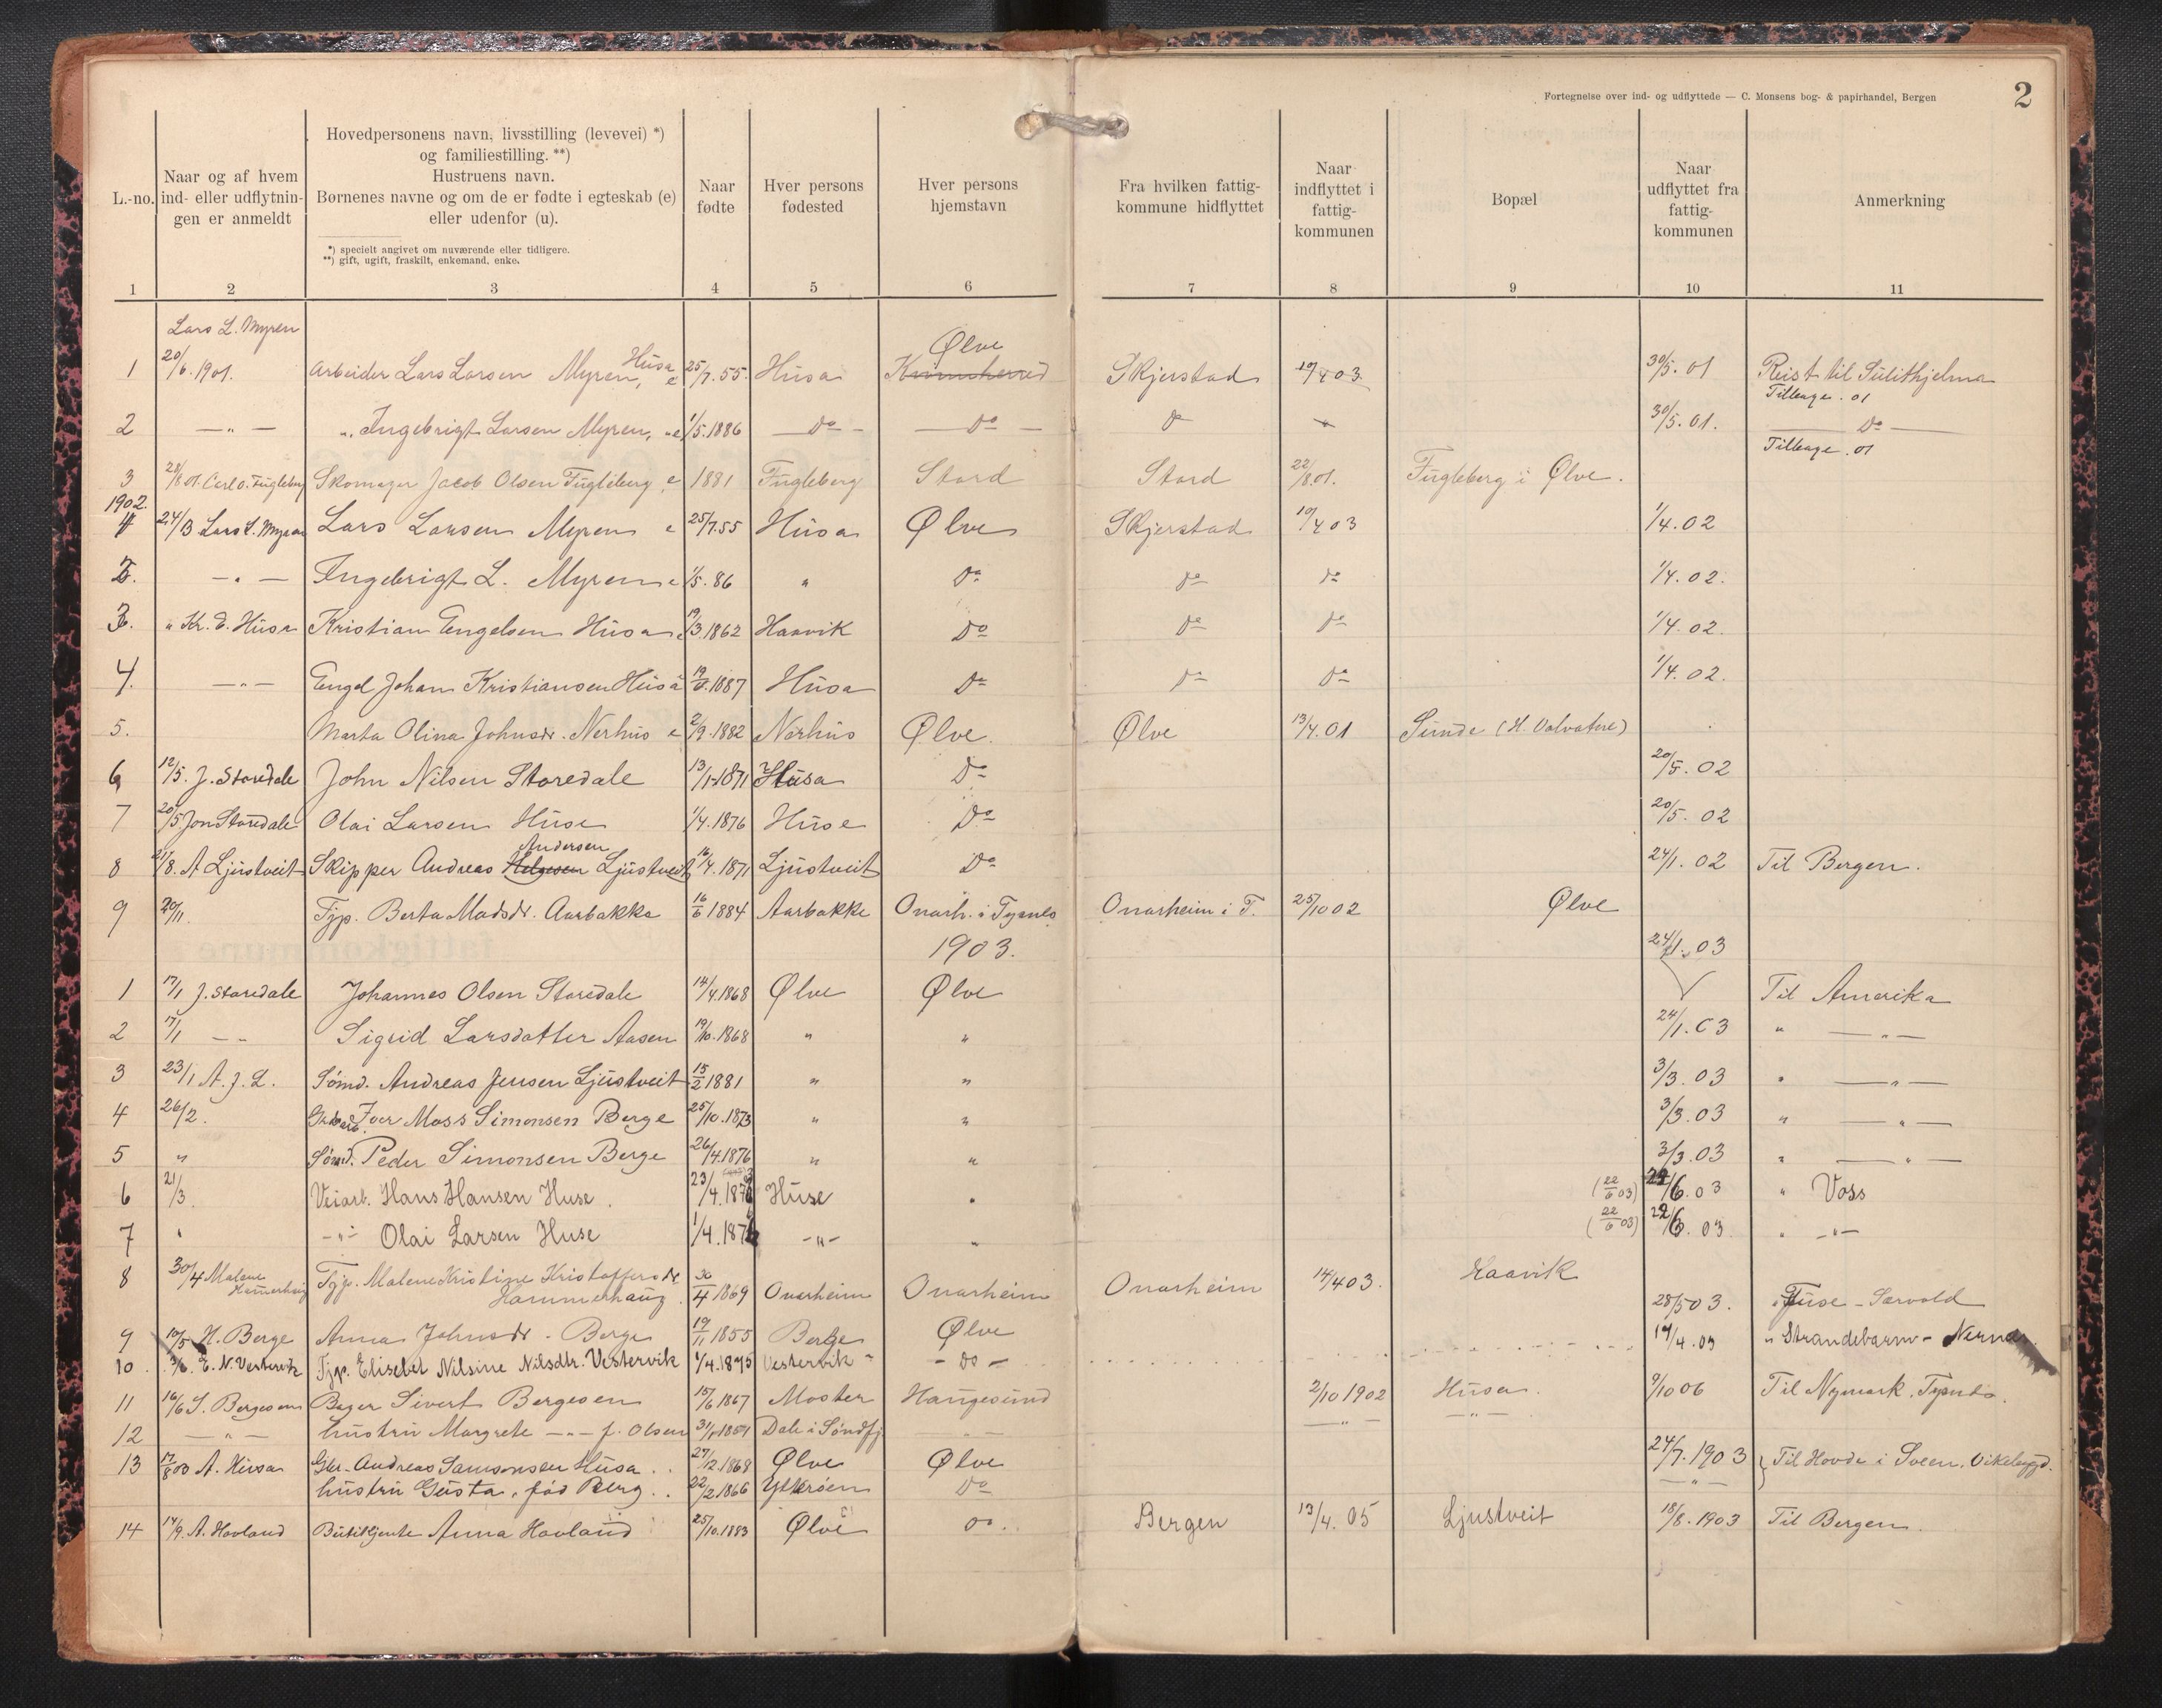 Fortegnelse over ind- og udflyttede — C. Monsens bog- & papirhandel, Bergen
2
L.-no.
Naar og af hvem
ind- eller udflytnin-
gen er anmeldt
Hovedpersonens navn, livsstilling (levevei) *)
og familiestilling. **)
Hustruens navn.
Børnenes navne og om de er fødte i egteskab (e)
eller udenfor (u).
*) specielt angivet om nuværende eller tidligere.
**) gift, ugift, fraskilt, enkemand, enke.
Naar
fødte
Hver persons
fødested
Hver persons
hjemstavn
Fra hvilken fattig-
kommune hidflyttet
Naar
indflyttet i
fattig-
kommunen
Bopæl
Naar
udflyttet fra
fattig-
kommunen
Anmerkning
1 2 3 4 5 6 7 8 9 10 11
Lars L. Myren
Ølve
1 20/6.1901. Arbeider Lars Larsen Myren, Husa e 25/7.55. Husa Kvinnherred Skjerstad 19/4 03. 30/5.01 Reist til Sulithjelma
Tilbage. 01
2 — " — " Ingebrigt Larsen Myren, " e 1/5.1886 — Do — — Do — Do " 30/5.01. — Do —
Tilbage. 01
3 28/8 01. Carl O. Fugleberg Skomager Jacob Olsen Fugleberg e 1881 Fugleberg Stord Stord 22/8 01. Fugleberg i Ølve.
1902.
1 24/3 Lars L. Myren Lars Larsen Myren e 25/7.55 Husa Ølve Skjerstad 19/4 03 1/4.02
2. — " — Ingebrigt L. Myren e 1/5.86 " Do Do Do 1/4.02.
3. " Kr. E. Husa Kristian Engelsen Husa e 19/3.1862 Haavik Do Do Do 1/4.02.
4. — " — Engel Johan Kristiansen Husa 1887 Husa Do Do Do 1/4.02.
5. Marta Olina Johnsdr. Nerhus e 2/9.1882 Nerhus Ølve. Ølve 13/4.01 Sunde (H. Valvatne)
6 12/5. J. Storedale John Nilsen Storedale 13/1.1871 Husa Do 20/5.02
7 20/5 Jon Storedale Olai Larsen Huse 1/4.1876 Huse Do 20/5.02
Andersen
8 21/8. A Ljustveit Skipper Andreas Helgesen Ljustveit 16/4.1871 Ljustveit Do 24/1.02 Til Bergen.
9 20/11. Tjp. Berta Madsdr. Aarbakke 16/6 1884 Aarbakke Onarh. i Tysnes Onarheim i T. 25/10 02 Ølve
1903. 24/1.03
1 17/1 J. Storedale Johannes Olsen Storedale 14/4.1868 Ølve Ølve Til Amerika
2 17/1 — — Sigrid Larsdatter Aasen 19/10.1868 " " 24/1.03 " — " —
3 23/1 A. J. L. Sømd. Andreas Jensen Ljustveit 15/2 1881 " " 3/3.03 " — " —
4 26/2. Iver Moss Simonsen Berge 25/10.1873 " " 3/3.03 " — " —
5 " Sømd. Peder Simonsen Berge 26/4.1876 " " 3/3.03 " — " —
6 21/3. Veiarb. Hans Hansen Huse. 23/4.1873 Huse " (22/6 03) 22/6.03 " Voss
7 " — " — Olai Larsen Huse 1/4.1876 — " — " (22/6 03) 22/6.03 " — " —
8 30/4 Malene Hammerhaug Tjp. Malene Kristine Kristoffersdr.
Hammerhaug 30/4 1869 Onarheim Onarheim Onarheim 14/4 03. Haavik 28/5 03. i Fuse - Sævold
9 10/5 H. Berge Anna Johnsdr. Berge 19/11 1855 Berge Ølve 14/4.03 " Strandebarm -
10. 3/6. E. N. Vestervik Tjp. Elisebet Nilsine Nilsdtr. Vestervik 1/4.1875 Vestervik - do -
11 16/6 S. Bergesen Bager Sivert Bergesen 15/6 1867 Moster Haugesund 2/10 1902 Husa. 9/10 06 Til Nymark. Tysnes.
12 — " — hustru Margrete — " — f. Olsen 31/1 1864 Dale i Søndfj. — " — — " —
13 17/8 03 A. Husa Gbr. Andreas Samsonsen Husa.. 27/12.1868 Ølve Ølve 24/7.1903 } Til Hovda i Sveen. Vikebygd.
hustru Gusta, fød Berg.. 22/2 1866 Ytterøen Do — " —
14 14/9. A. Havland Butikjente Anna Havland 25/10.1883 Ølve Do. Bergen 13/4.05 Ljustveit 18/8.1903 Til Bergen.